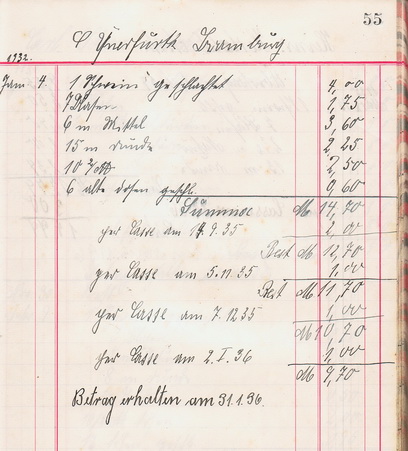 55
Querfurth Bramburg
1932.
Jan 4. 1 Schwein geschlachtet 4,00
7 Rasen 1,75
6 m Mittel 3,60
15 m runde 2,25
10 2,50
6 alte dosen geschl. 0,60
Summe M 14,70
per Casse am 19.9.35 2,00
Rest M 12,70
per Casse am 5.11.35 1,00
Rest M 11,70
per Casse am 7.12 35 1,00
M 10,70
per Casse am 2.I.36 1,00
M 9,70
Betrag erhalten am 31.1.36.